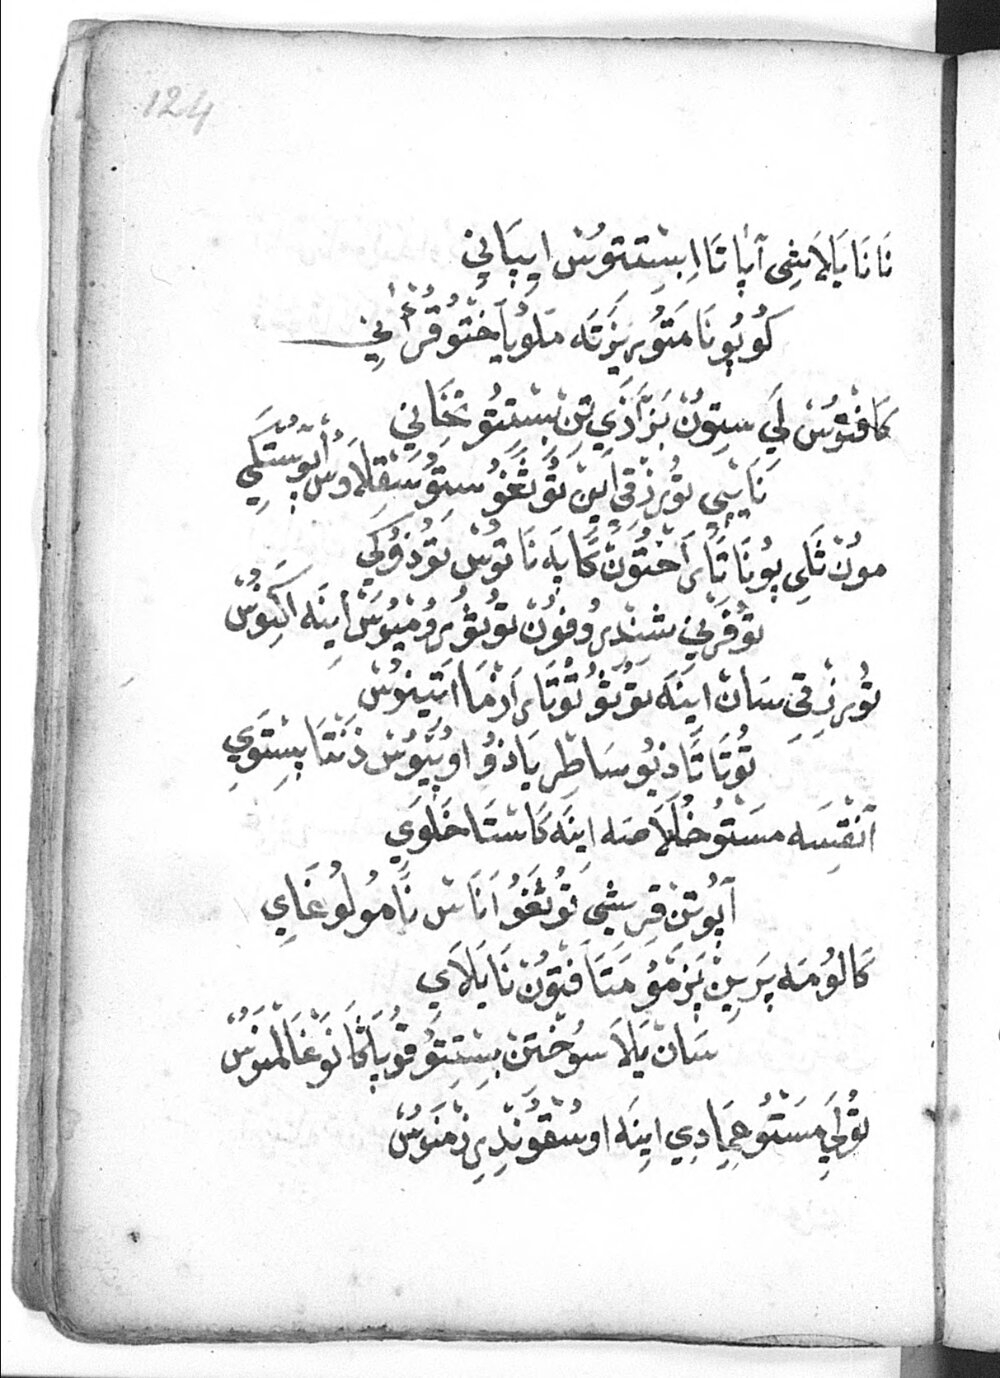 124
نَانَا يَالَاشِى آپَاتَا اِبِسْتِتوُسْ اِيپَانِي
كوُپوُنَا مَتوُرِيزَتَه مَلوُيَا خْتوُقُرْاٰنِي
كَافِتوُسْ لَي سِتوُنْ بَزَاذِي تِنْ بِسْتِتوُتْخَانِي
نَايپِى توُرِزْقِ اَيِنْ توُتْغوُ سِتوُسَقِلَاوُسْ اَپوُسْتَكِي
موُنْ ثَلِي پوُنَا تَارَاخْتوُنْ كَاپَه نَا توُسْ توُذوُكِي
توُفَرِنِي شِنْدِروُفوُنْ توُتوُ روُمْيوُسْ اِينَه اَكِنوُسْ
توُرِزِقِ سَانْ اِينَه توُتوُ توُتَارَا ذْمَا اَتِينوُسْ
توُتَاتَا ذِيوُ سَاطِرِيَا ذوُ اوُپيوُسْ ذَنْتَا پِسْتِوَي
آنْقِسَه مَسْتوُ خُلَاصَه اِينَه كَاسْتَا خَلَوَي
آپوُتِنْ قِرِشِى توُتْغوُ اَنَاسْ نَا موُلوُغَاي
كَالوُمَه پَرِينْ پَزَموُ مَتَافْتوُنْ نَايَلَاي
سَانْ يَلَاسوُخْتِنْ بِسْتِتوُ قوُپَاكَا نوُغَا لْمَنوُسْ
توُلَي مَسْتوُ عِمَادِي اِينَه اوُسْقوُنْدِرِزْمَنوُسْ